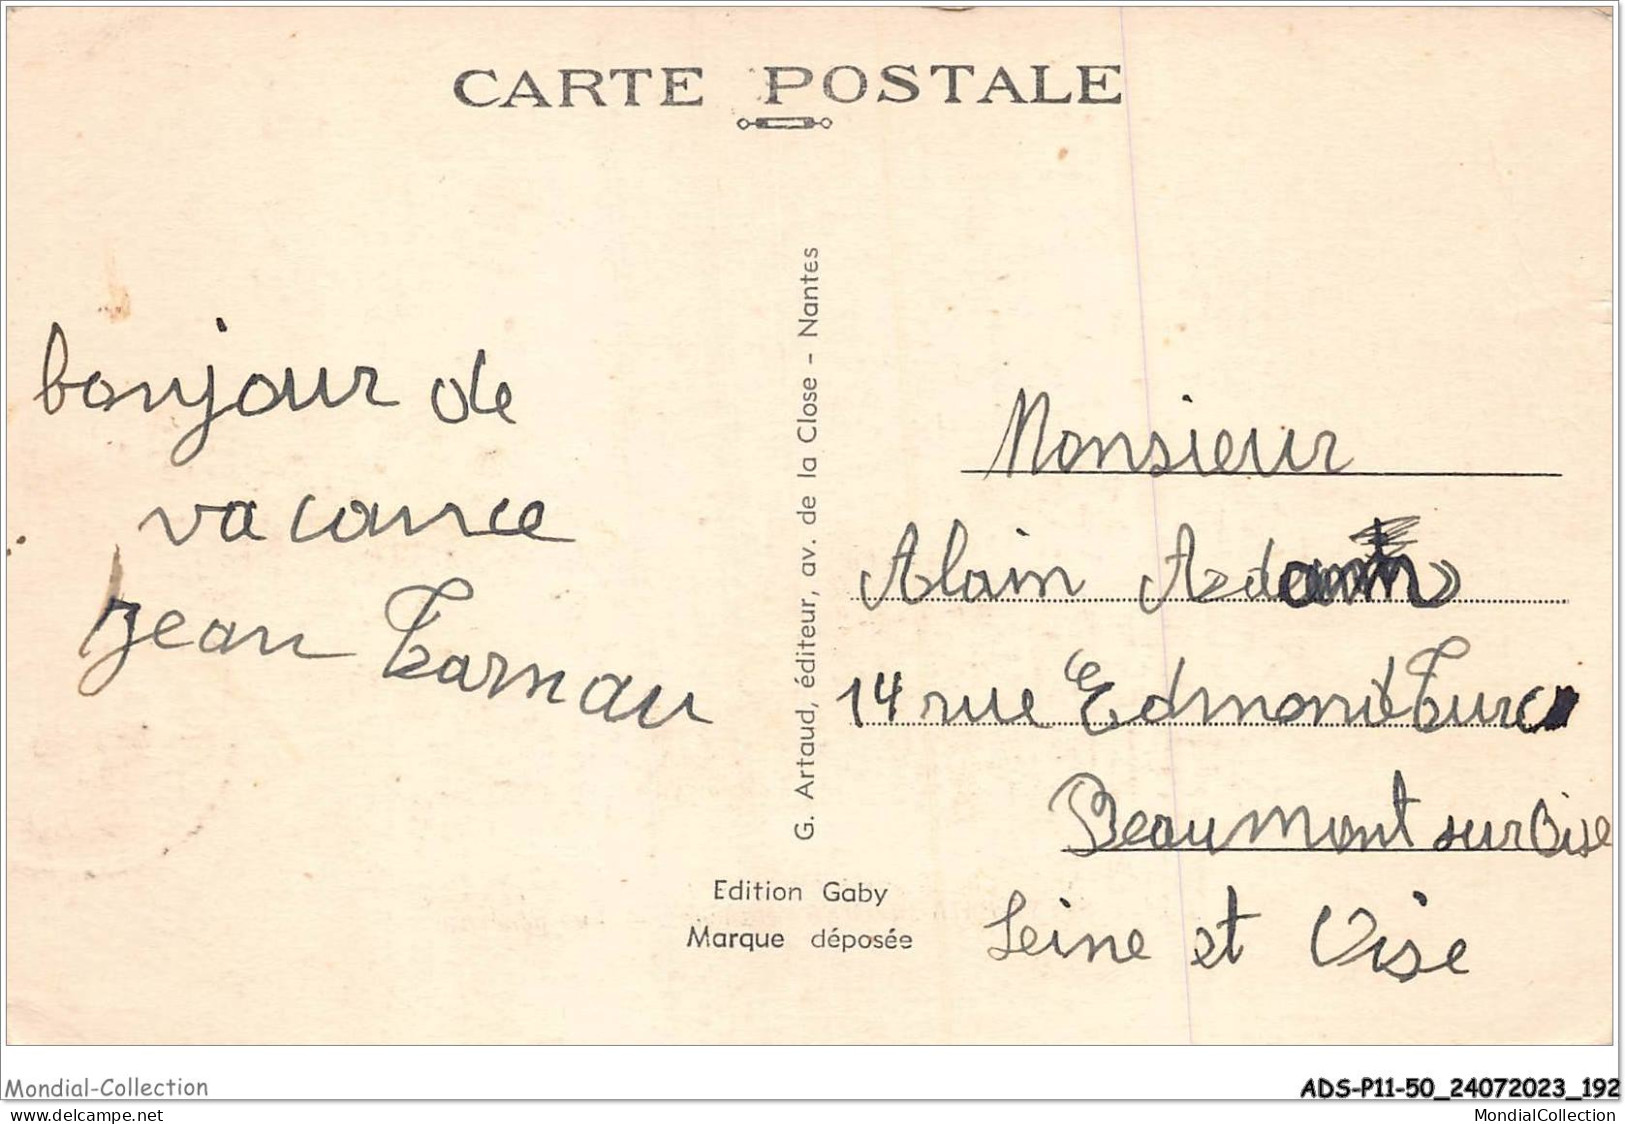 CARTE POSTALE
bonjour de
vacance
Jean Tarnau
G. Artaud, éditeur, av. de la Close - Nantes
Edition Gaby
Marque déposée
Monsieur
Alain
14 rue Edmond Turc
Beaumont sur Oise
Seine et Oise
Mondial-Collection
ADS-P11-50_24072023_192
www.delcampe.net
MondialCollection